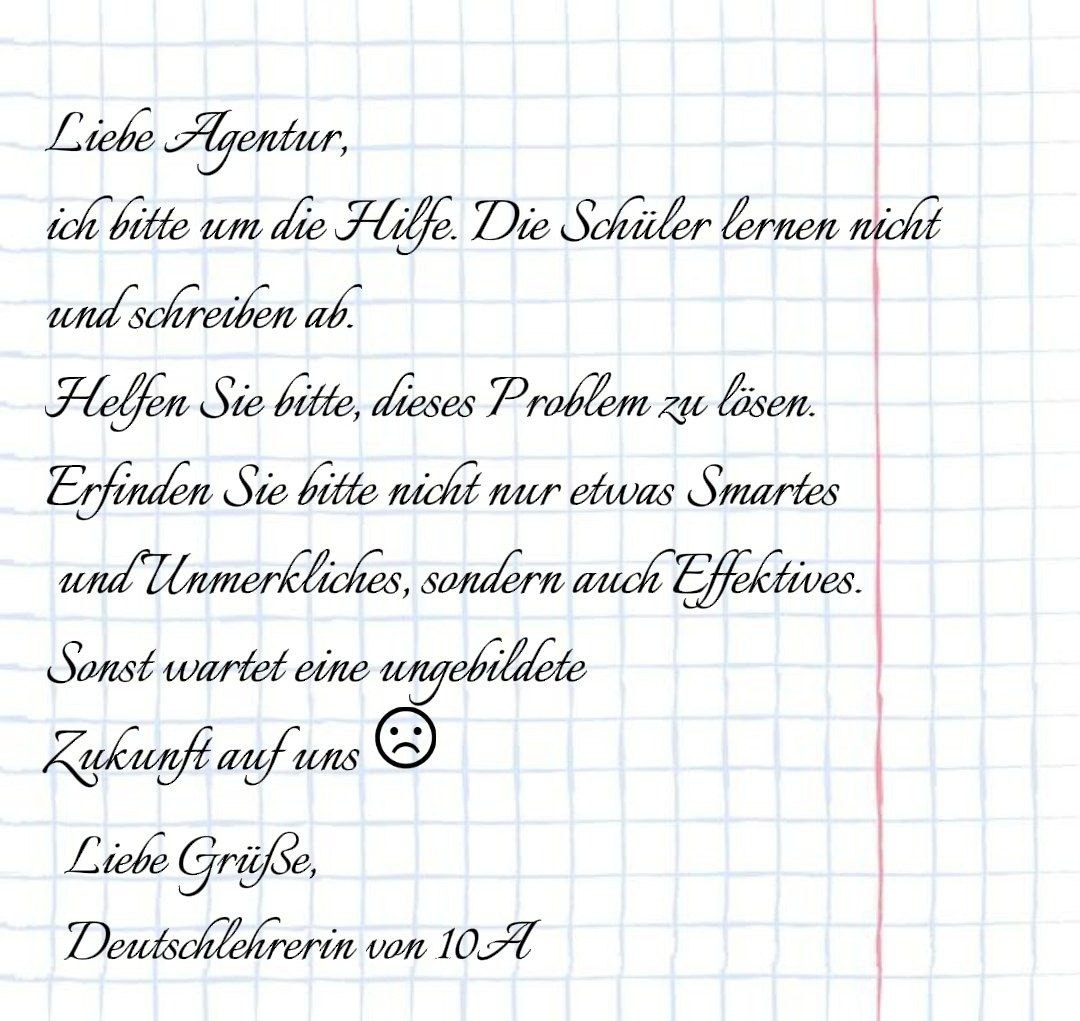 Liebe Agentur,
ich bitte um die Hilfe. Die Schüler lernen nicht
und schreiben ab.
Helfen Sie bitte, dieses Problem zu lösen.
Erfinden Sie bitte nicht nur etwas Smartes
und Unmerkliches, sondern auch Effektives.
Sonst wartet eine ungebildete
Zukunft auf uns ☹
Liebe Grüße,
Deutschlehrerin von 10A